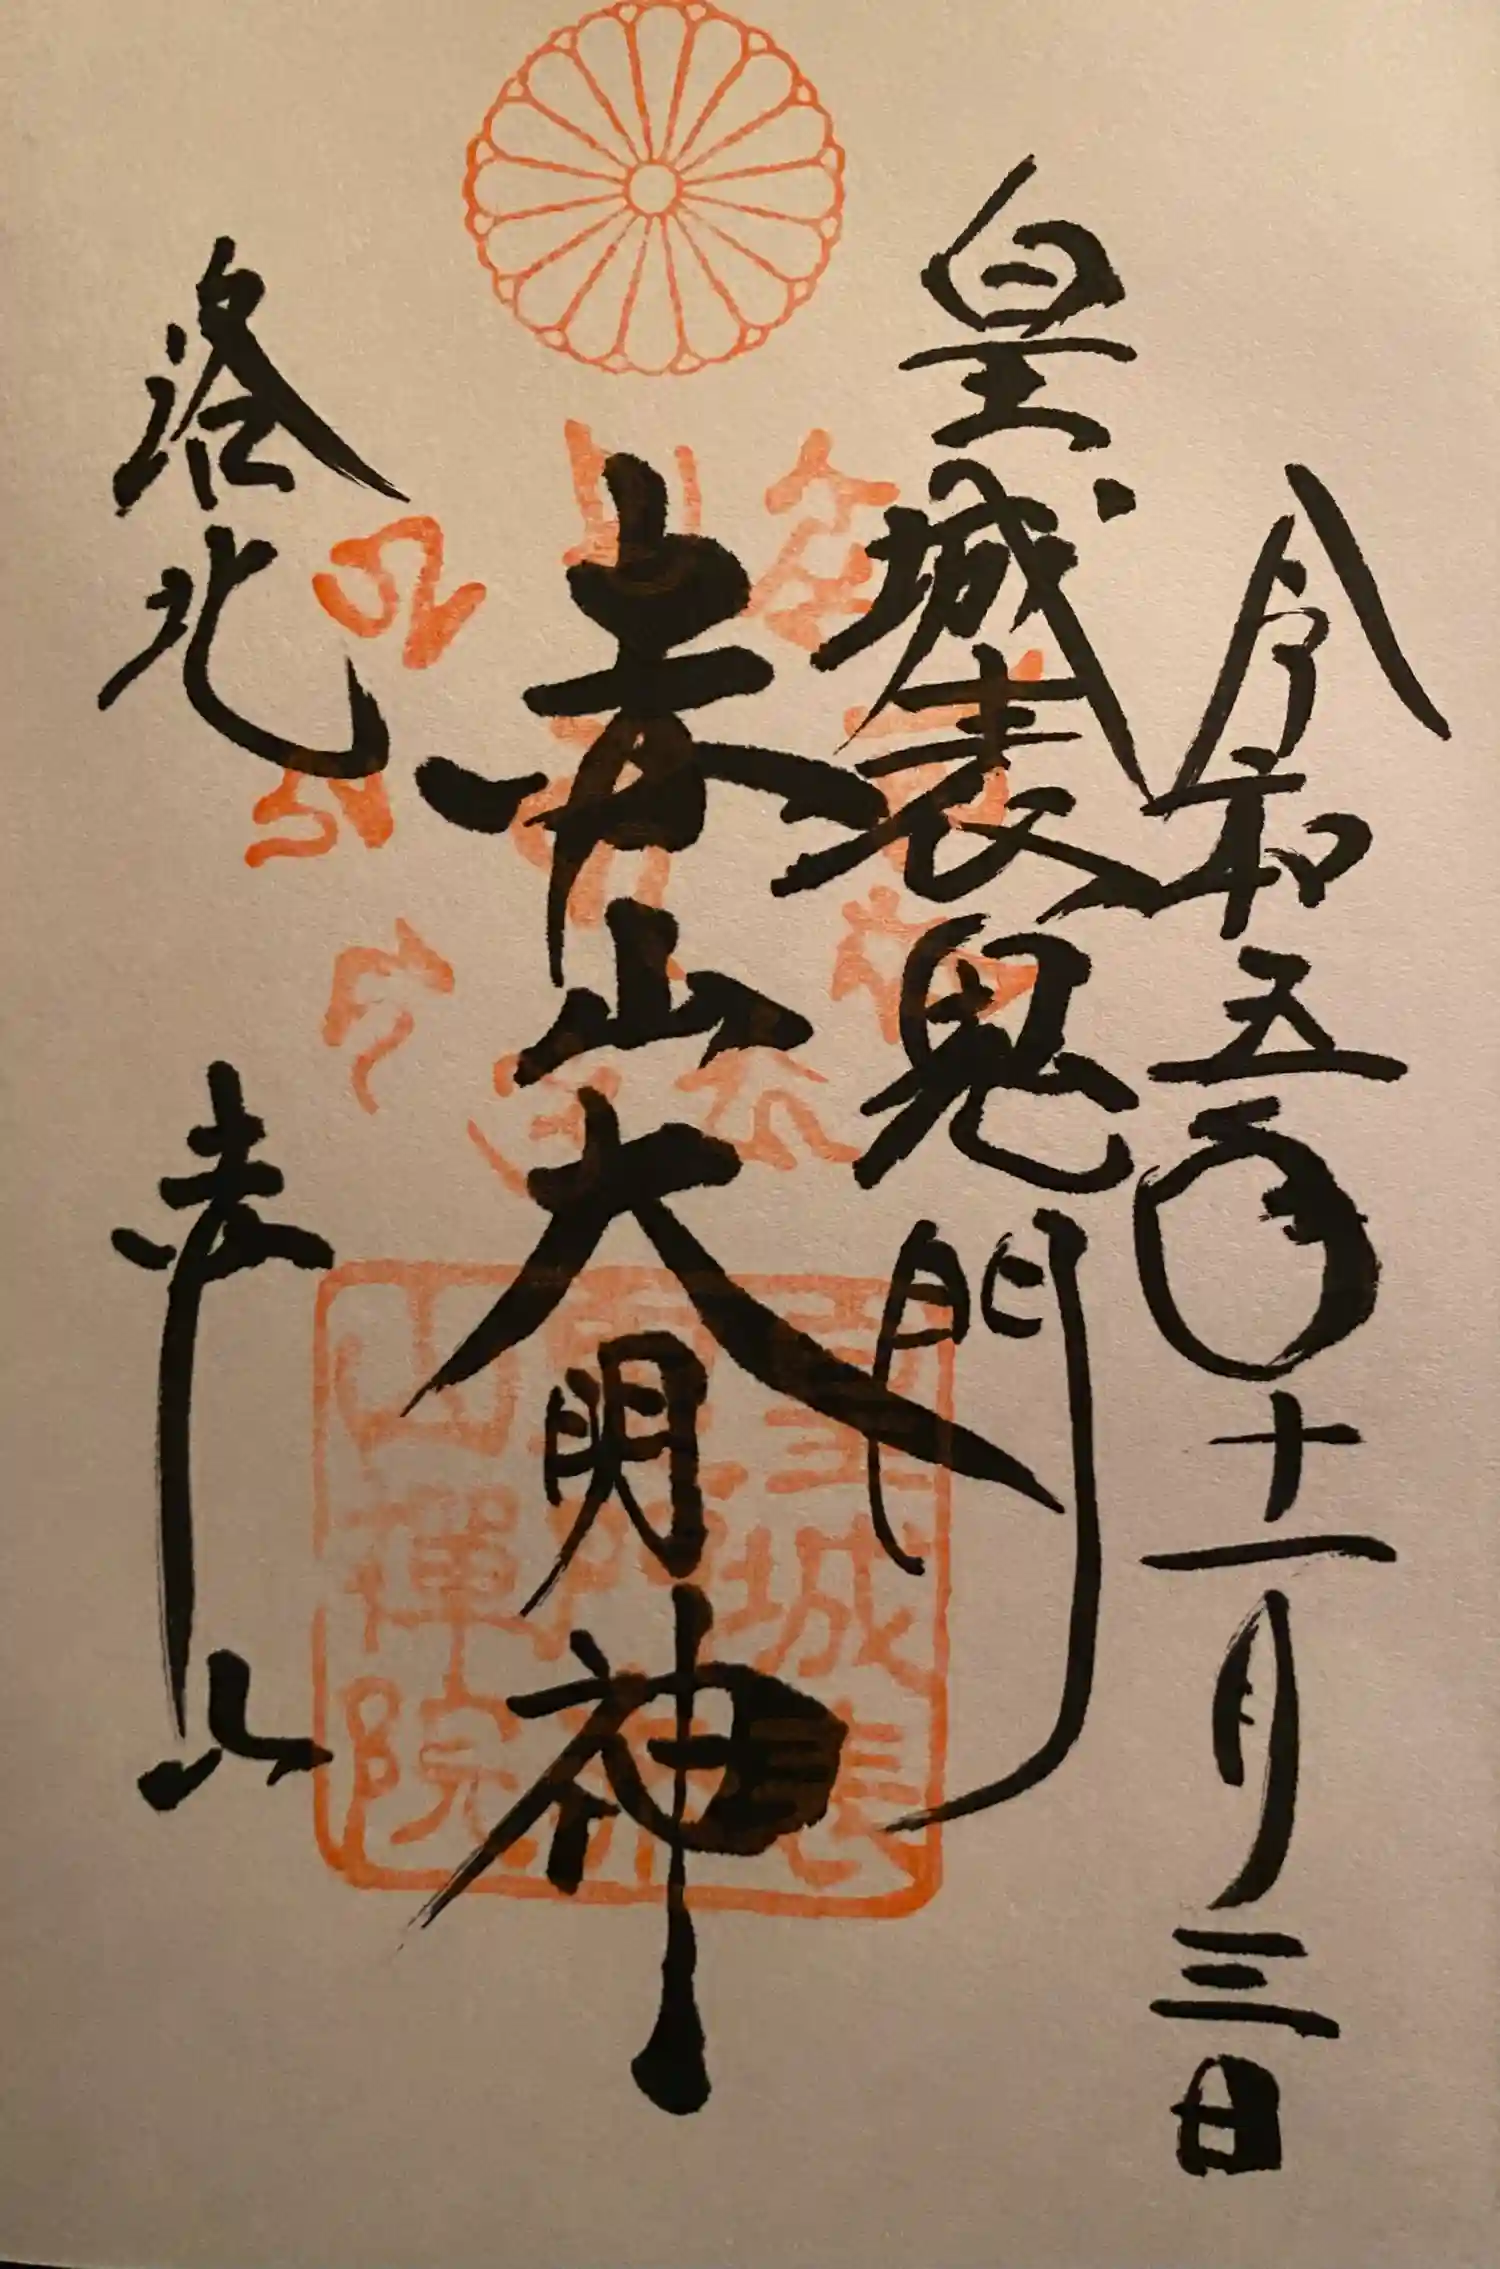 令和五年十一月三日
皇城表鬼門
赤山大明神
洛北
赤山
皇城表
山禅院